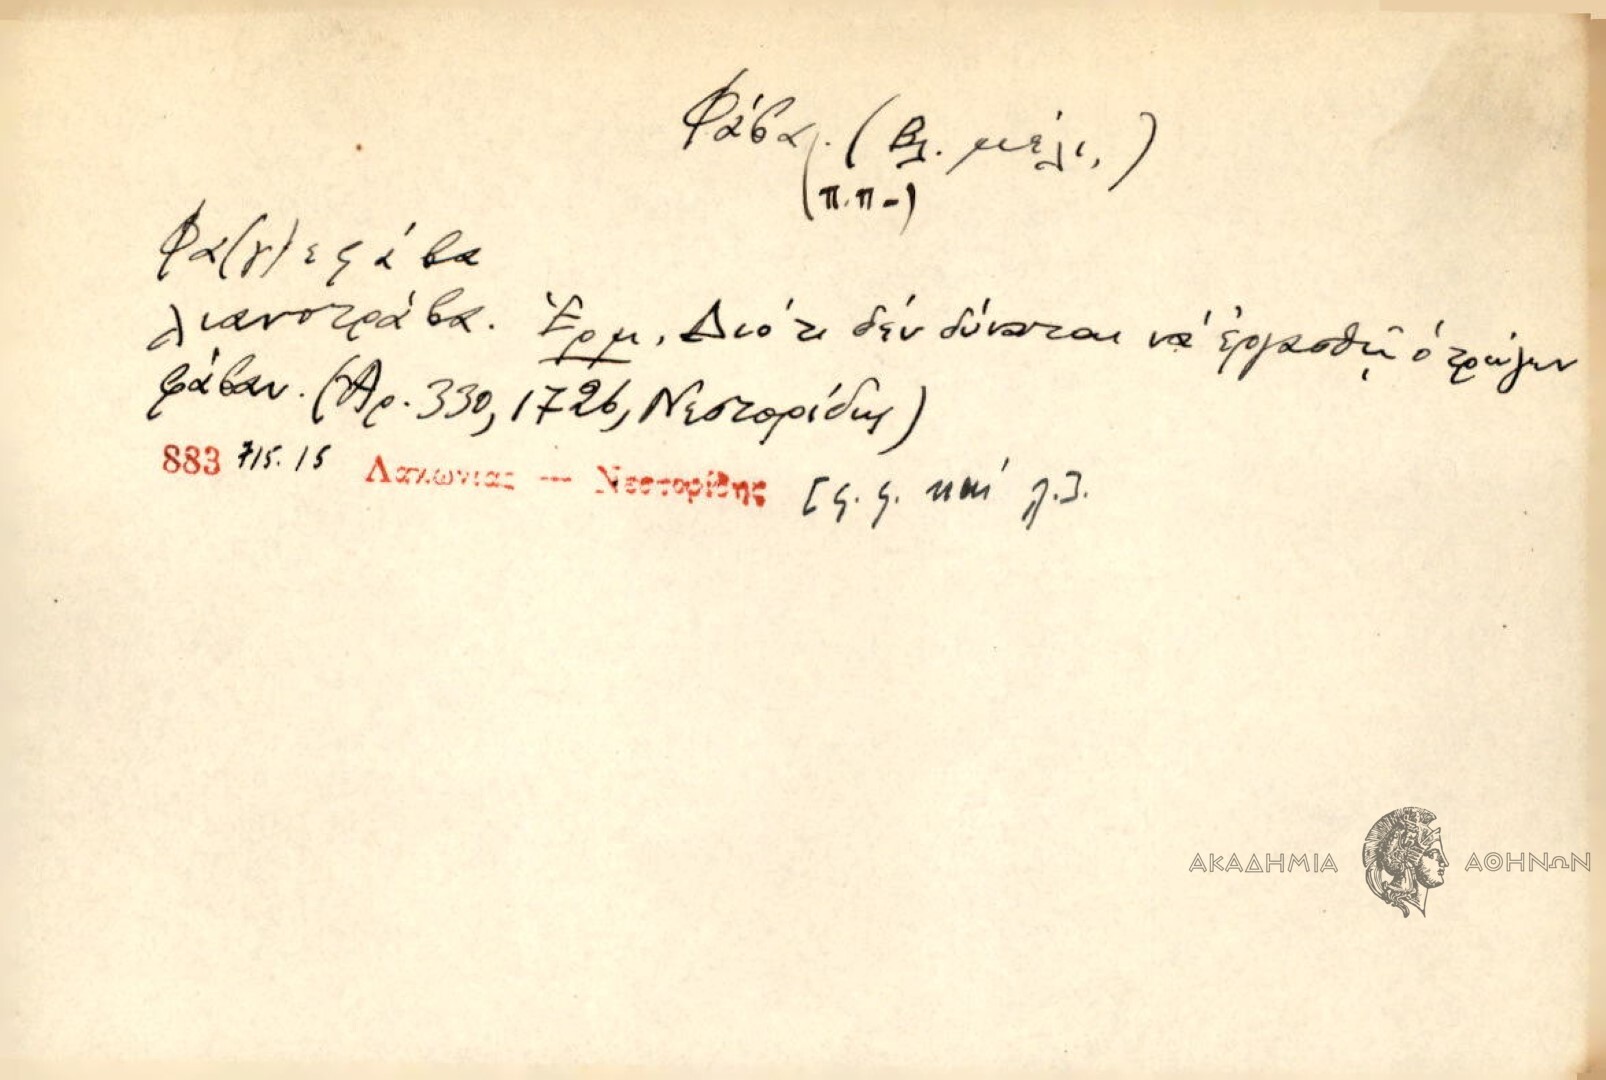 Φάβα. (βλ. μέλι,)
(π.π.-)
Φα(γ)ε φάβα
λιανοτράβα. Ἑρμ. Διότι δέν δύναται νά ἐργασθῇ ὁ τρώγων
φάβαν. (Ἀρ. 330, 1726, Νεστορίδης)
883 715.15 Λακωνίας — Νεστορίδης [φ. φ. καί λ.].
ΑΚΑΔΗΜΙΑ ΑΘΗΝΩΝ